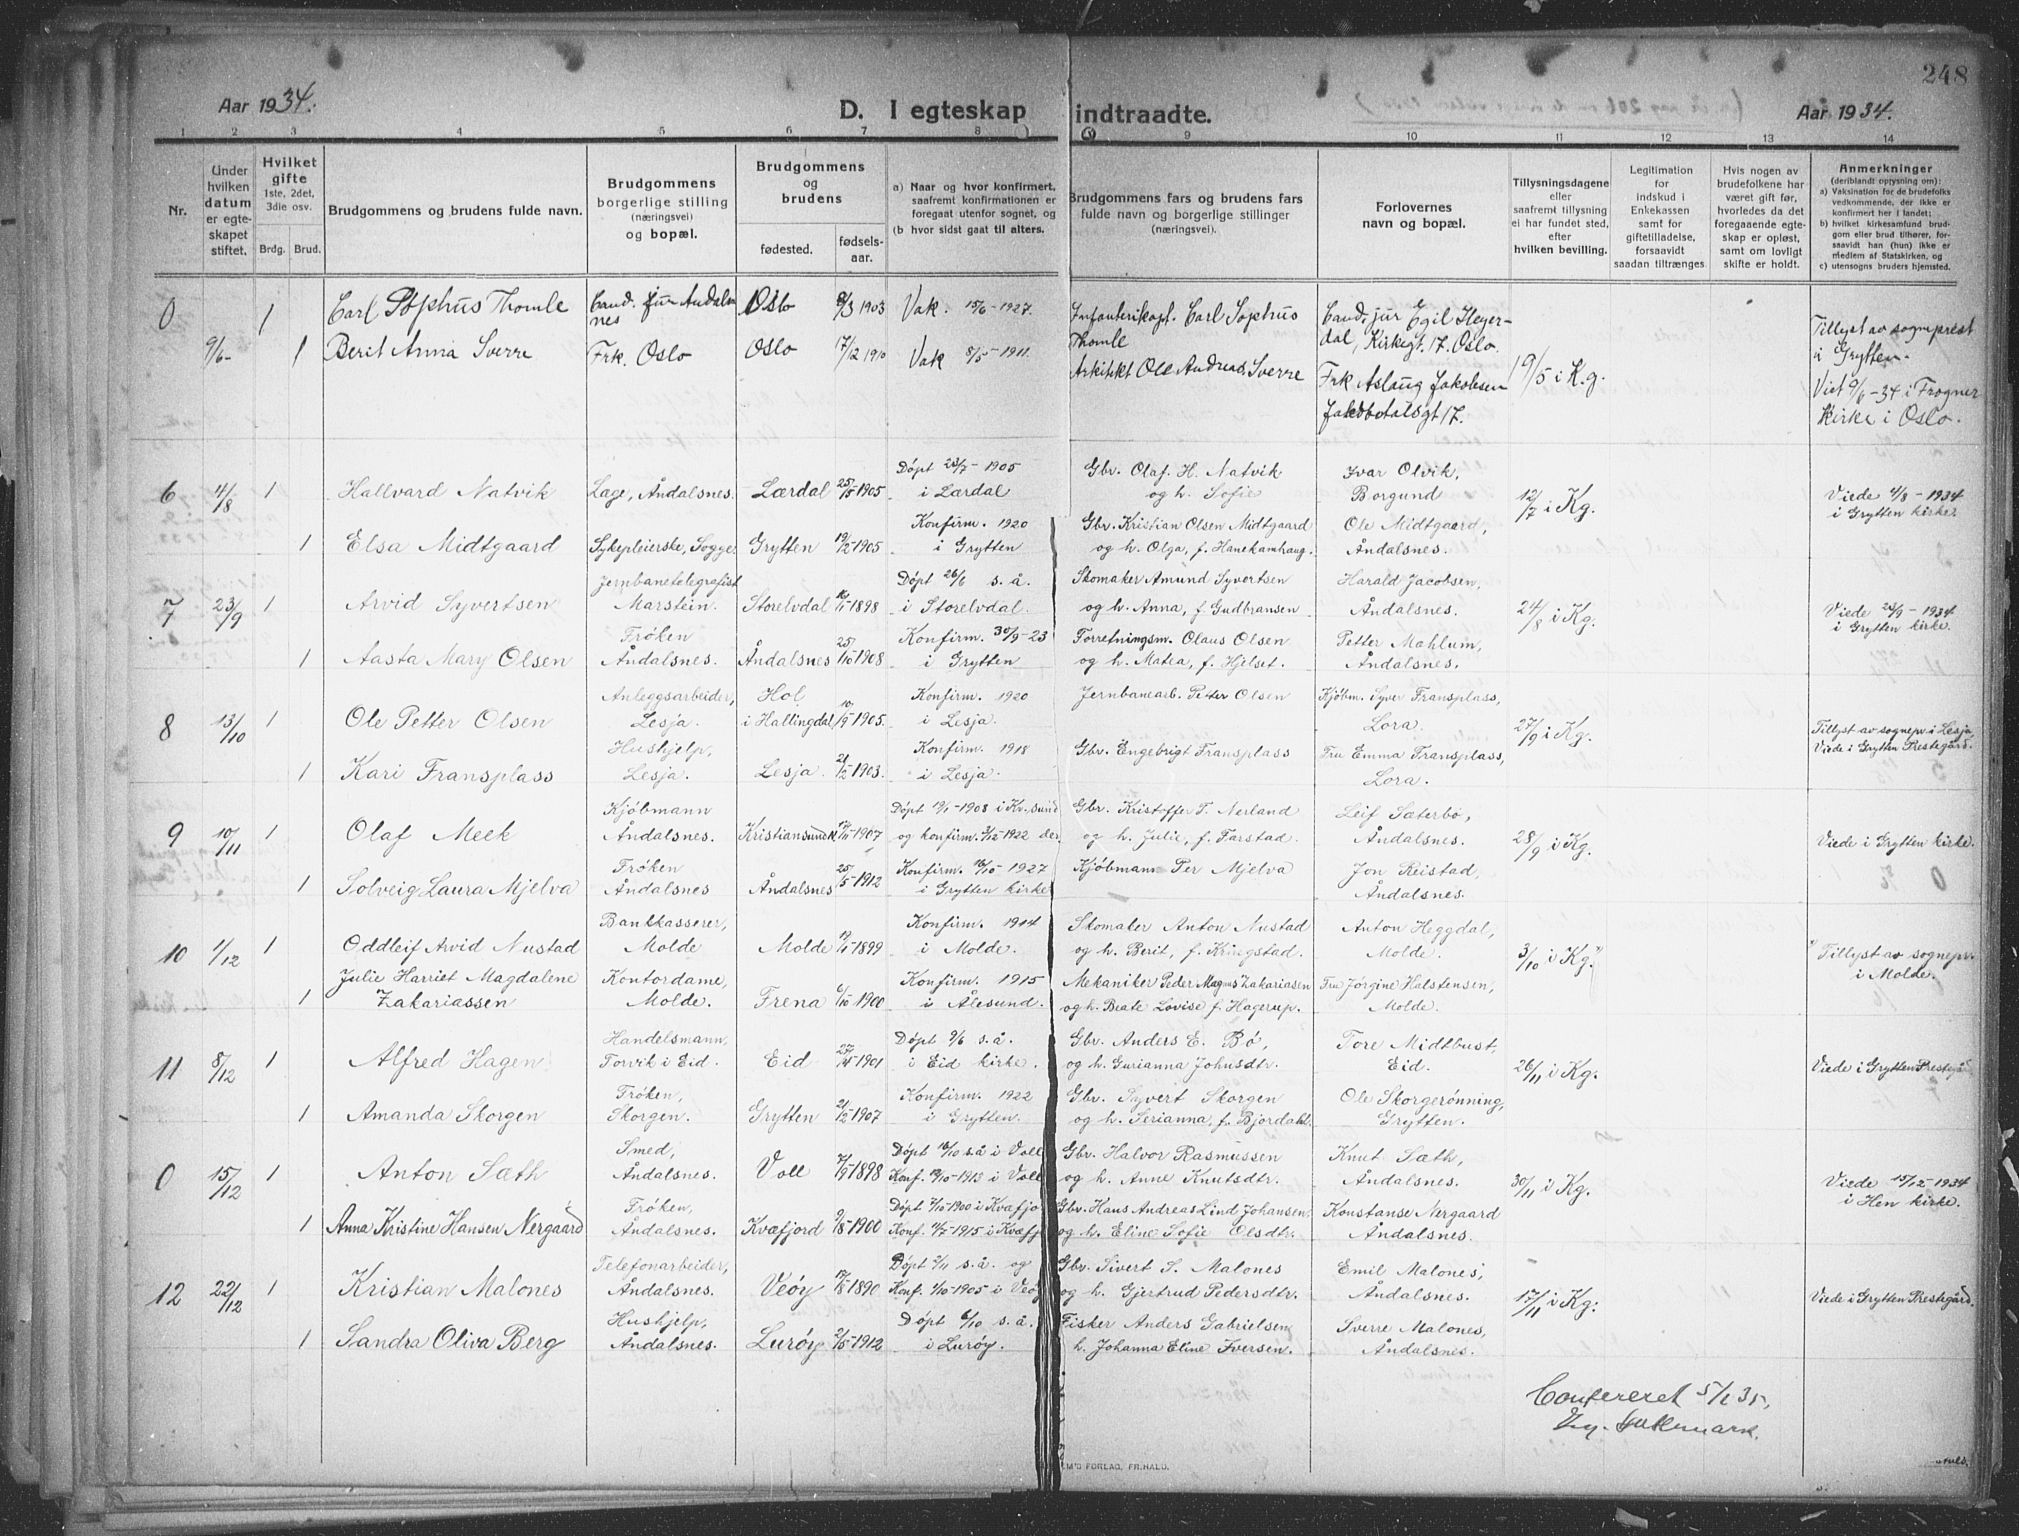 248
Aar 1934. D. I egteskap indtraadte. Aar 1934.
1 2 3 4 5 6 7 8 9 10 11 12 13 14
Nr.
Under hvilken datum er egteskapet stiftet.
Hvilket gifte 1ste, 2det, 3die osv.
Brdg. Brud.
Brudgommens og brudens fulde navn.
Brudgommens borgerlige stilling (næringsvei) og bopæl.
Brudgommens og brudens
fødested. fødselsaar.
a) Naar og hvor konfirmert, saafremt konfirmationen er foregaat utenfor sognet, og
(b hvor sidst gaat til alters.
Brudgommens fars og brudens fars fulde navn og borgerlige stillinger (næringsvei).
Forlovernes navn og bopæl.
Tillysningsdagene eller saafremt tillysning ei har fundet sted, efter hvilken bevilling.
Legitimation for indskud i Enkekassen for giftetilladelse, forsaavidt saadan tiltrænges
Hvis nogen av brudefolkene har været gift før, hvorledes da det foregaaende egteskap er opløst, samt om lovligt skifte er holdt.
Anmerkninger (deriblandt oplysning om):
a) Vaksination for de brudefolks vedkommende, der ikke er konfirmert her i landet;
b) hvilket kirkesamfund brudgom eller brud tilhører, forsaavidt han (hun) ikke er medlem af Statskirken, og
c) utensogns bruders hjemsted.
0 1 Carl Sophus Thomle Cand. jur Åndalsnes Oslo 9/3 1903 Vak. 15/6-1927. Infanterikapt. Carl Sophus Thomle Cand. jur Egil Heyerdal, Kirkegt. 17. Oslo.
9/6- 1 Berit Anna Sverre Frk. Oslo Oslo 17/12 1910 Vak 8/5-1911. Arkitekt Ole Andreas Sverre Frk Aslaug Jakobsen Jakobbotalsgt 17. 19/5 i K.g. Tillyst av sogneprest i Grytten. Viet 9/6-34 i Frogner Kirke i Oslo.
6 4/8 1 Hallvard Natvik Læge, Åndalsnes. Lærdal 25/5 1905 Døpt 23/7-1905 i Lærdal Gbr. Olaf. H. Natvik og h. Sofie Ivar Olvik, Borgund 12/7 i Kg. Viede 4/8-1934 i Grytten kirke
1 Elsa Midtgaard Sykepleierske, Sogge Grytten 19/2 1905 Konfirm. 1920 i Grytten Gbr. Kristian Olsen Midtgaard og h. Olga, f. Hanekamhaug. Ole Midtgaard, Åndalsnes.
7 23/9 1 Arvid Syvertsen Jernbanetelegrafist Marstein. Storelvdal 16/1-1898 Døpt 26/6 s. å. i Storelvdal. Skomaker Amund Syvertsen og h. Anna, f. Gudbransen Harald Jacobsen, Åndalsnes. 24/8 i Kg. Viede 23/9-1934 i Grytten kirke.
1 Aasta Mary Olsen Frøken Åndalsnes. Åndalsnes 25/10 1908 Konfirm. 30/9-23 i Grytten Forretningsm. Olaus Olsen og h. Matea, f. Hjelset. Petter Mahlum, Åndalsnes.
8 13/10 1 Ole Petter Olsen Anleggsarbeider, Lesja. Hol i Hallingdal 10/9 1905. Konfirm. 1920 i Lesja. Jernbanearb. Petter Olsen Kjøbm. Syver Fransplass, Lora. 27/9 i Kg. Tillyst av sognepr. i Lesja, Viede i Grytten Prestegård.
1 Kari Fransplass Hushjelp, Lesja. Lesja. 21/2 1903. Konfirm. 1918 i Lesja. Gbr. Engebrigt Fransplass Fru Emma Fransplass, Lora.
9 10/11 1 Olaf Meek Kjøbmann Åndalsnes. Kristiansund N. 17/11 1907 Døpt 19/1-1908 i Kr.sund og konfirm. 3/12-1922 der Gbr. Kristoffer T. Nerland og h. Julie, f. Farstad. Leif Sæterbø, Åndalsnes. 28/9 i Kg. Viede i Grytten kirke.
1 Solveig Laura Mjelva Frøken Åndalsnes Åndalsnes 25/5-1912 Konfirm. 16/10-1927 i Grytten kirke Kjøbmann Per Mjelva Jon Reistad, Åndalsnes.
10 1/12 1 Oddleif Arvid Nustad Bankkasserer, Molde Molde 19/1 1899 Konfirm. 1914 i Molde. Skomaker Anton Nustad og h. Berit, f. Kringstad. Anton Heggdal, Molde. 3/10 i Kg. Tillyst av sognepr. i Molde.
1 Julie Harriet Magdalene Zakariassen Kontordame, Molde. Fræna 6/10 1900 Konfirm. 1915 i Ålesund. Mekaniker Peder Magnus Zakariasen og h. Beate Lovise f. Hagerup. Fru Jørgine Halstensen, Molde.
11 8/12 1 Alfred Hagen Handelsmann, Torvik i Eid. Eid 27/4 1901 Døpt 9/6 s. å. i Eid kirke. Gbr. Anders E. Bø, og h. Gurianna Johnsdtr. Tore Midtbust, Eid. 26/11 i Kg. Viede i Grytten Prestegård
1 Amanda Skorgen Frøken, Skorgen. Grytten 21/2 1907 Konfirm. 1922 i Grytten. Gbr. Syvert Skorgen og h. Serianna, f. Bjordahl. Ole Skorgerønning, Grytten.
0 15/12 1 Anton Sæth Smed, Åndalsnes. Voll 7/9 1898 Døpt 16/10 s.å i Voll Konf. 19/10-1913 i Voll Gbr. Halvor Rasmussen og h. Anne Knutsdtr. Knut Sæth, Åndalsnes. 30/11 i Kg. Viede 15/12-1934 i Hen kirke.
1 Anna Kristine Hansen Nergaard Frøken, Åndalsnes. Kvæfjord 9/8 1900 Døpt 7/10-1900 i Kvæfjo Konf. 11/7-1915 i Kvæfj Gbr. Hans Andreas Lind Johansen, og h. Eline Sofie Olsdtr. Konstanse Nergaard Åndalsnes.
12 22/12 1 Kristian Malones Telefonarbeider, Åndalsnes. Veøy 17/8 1890 Døpt 2/11 s. å. og Konf. 1/10-1905 i Veøy Gbr. Sivert S. Malones og h. Gjertrud Pedersdtr. Emil Malones, Åndalsnes. 17/11 i Kg. Viede i Grytten Prestegård.
1 Sandra Oliva Berg Hushjelp, Åndalsnes. Lurøy 2/5 1912 Døpt 6/10 s. å. i Lurøy. Fisker Anders Gabrielsen h. Johanna Eline Iversen. Sverre Malones, Åndalsnes.
Confereret 5/1 35.
FORLAG, FR.HALD.